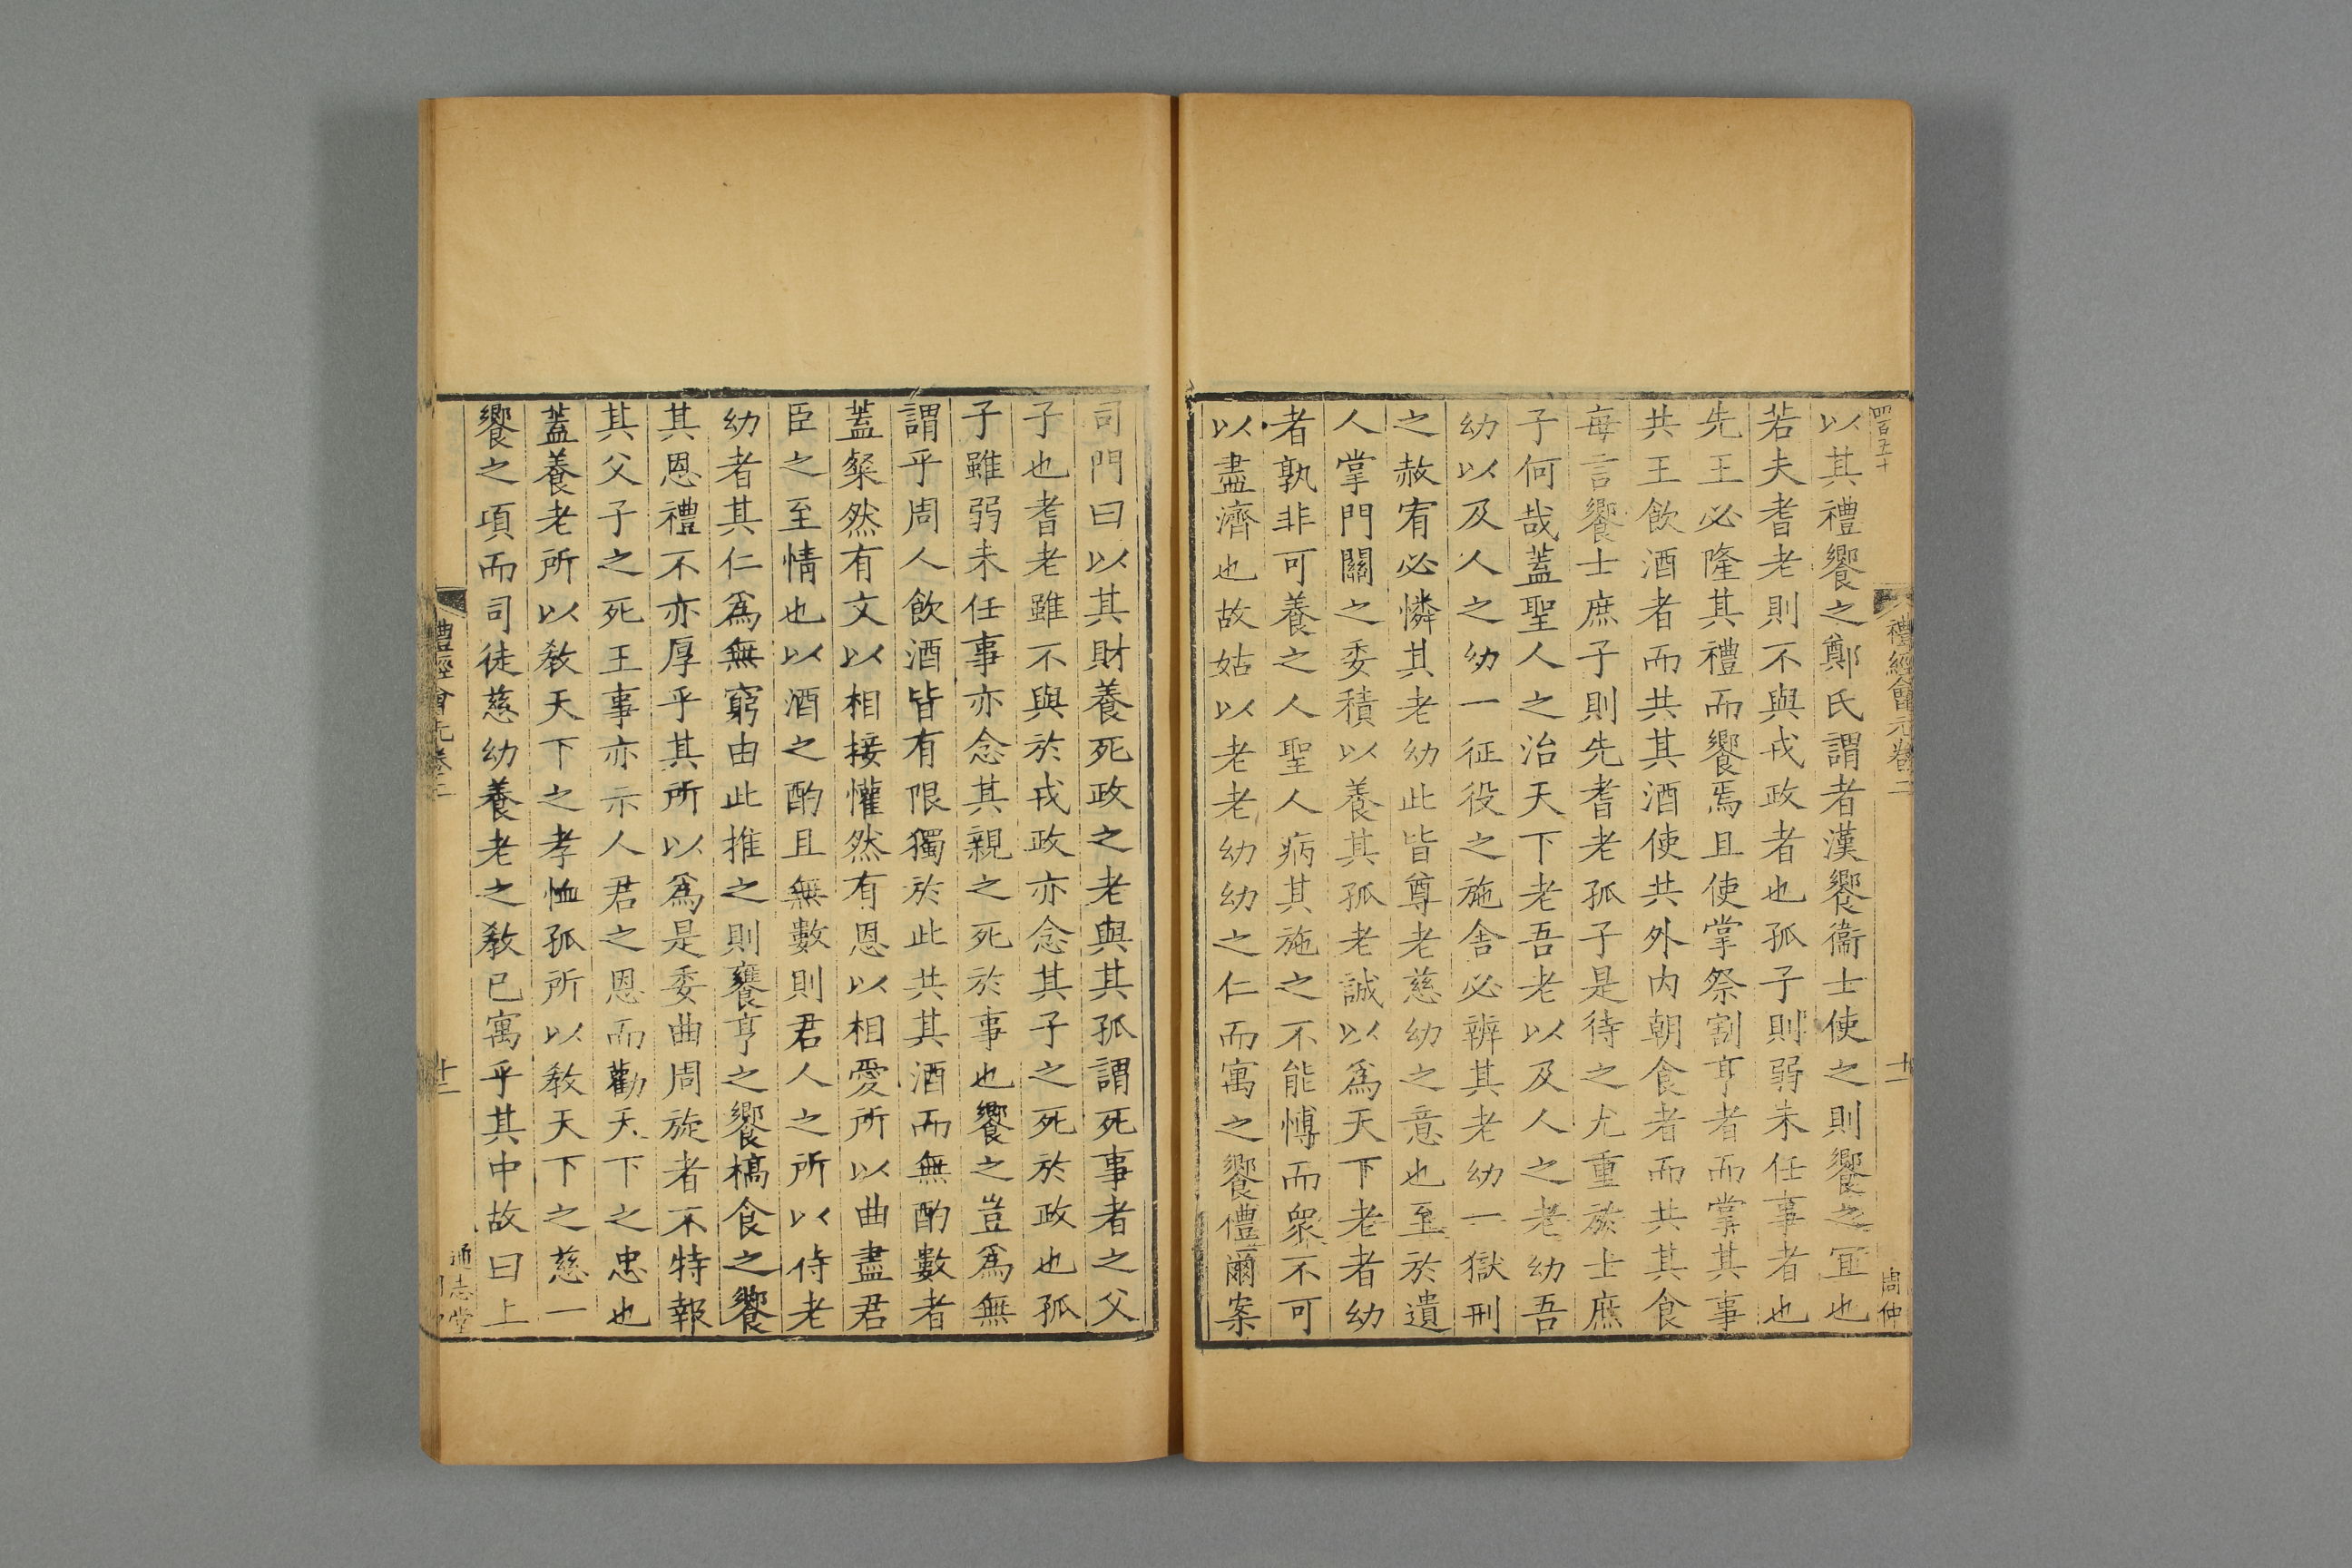 四百五十
禮經會元卷二
十一
周仲
以其禮饗之鄭氏謂者漢饗衞士使之則饗之宜也
若夫耆老則不與戎政者也孤子則弱未任事者也
先王必隆其禮而饗焉且使掌祭割亨者而掌其事
共王飲酒者而共其酒使共外内朝食者而共其食
每言饗士庶子則先耆老孤子是待之尤重於士庶
子何哉蓋聖人之治天下老吾老以及人之老幼吾
幼以及人之幼一征役之施舍必辨其老幼一獄刑
之赦宥必憐其老幼此皆尊老慈幼之意也至於遺
人掌門關之委積以養其孤老誠以爲天下老者幼
者孰非可養之人聖人病其施之不能愽而衆不可
以盡濟也故姑以老老幼幼之仁而寓之饗禮爾案
司門曰以其財養死政之老與其孤謂死事者之父
子也耆老雖不與於戎政亦念其子之死於政也孤
子雖弱未任事亦念其親之死於事也饗之豈爲無
謂乎周人飲酒皆有限獨於此共其酒而無酌數者
蓋粲然有文以相接懽然有恩以相愛所以曲盡君
臣之至情也以酒之酌且無數則君人之所以待老
幼者其仁爲無窮由此推之則饔亨之饗槁食之饗
其恩禮不亦厚乎其所以爲是委曲周旋者不特報
其父子之死王事亦示人君之恩而勸天下之忠也
蓋養老所以敎天下之孝恤孤所以敎天下之慈一
饗之項而司徒慈幼養老之敎已寓乎其中故曰上
禮經會元卷二
十二
通志堂